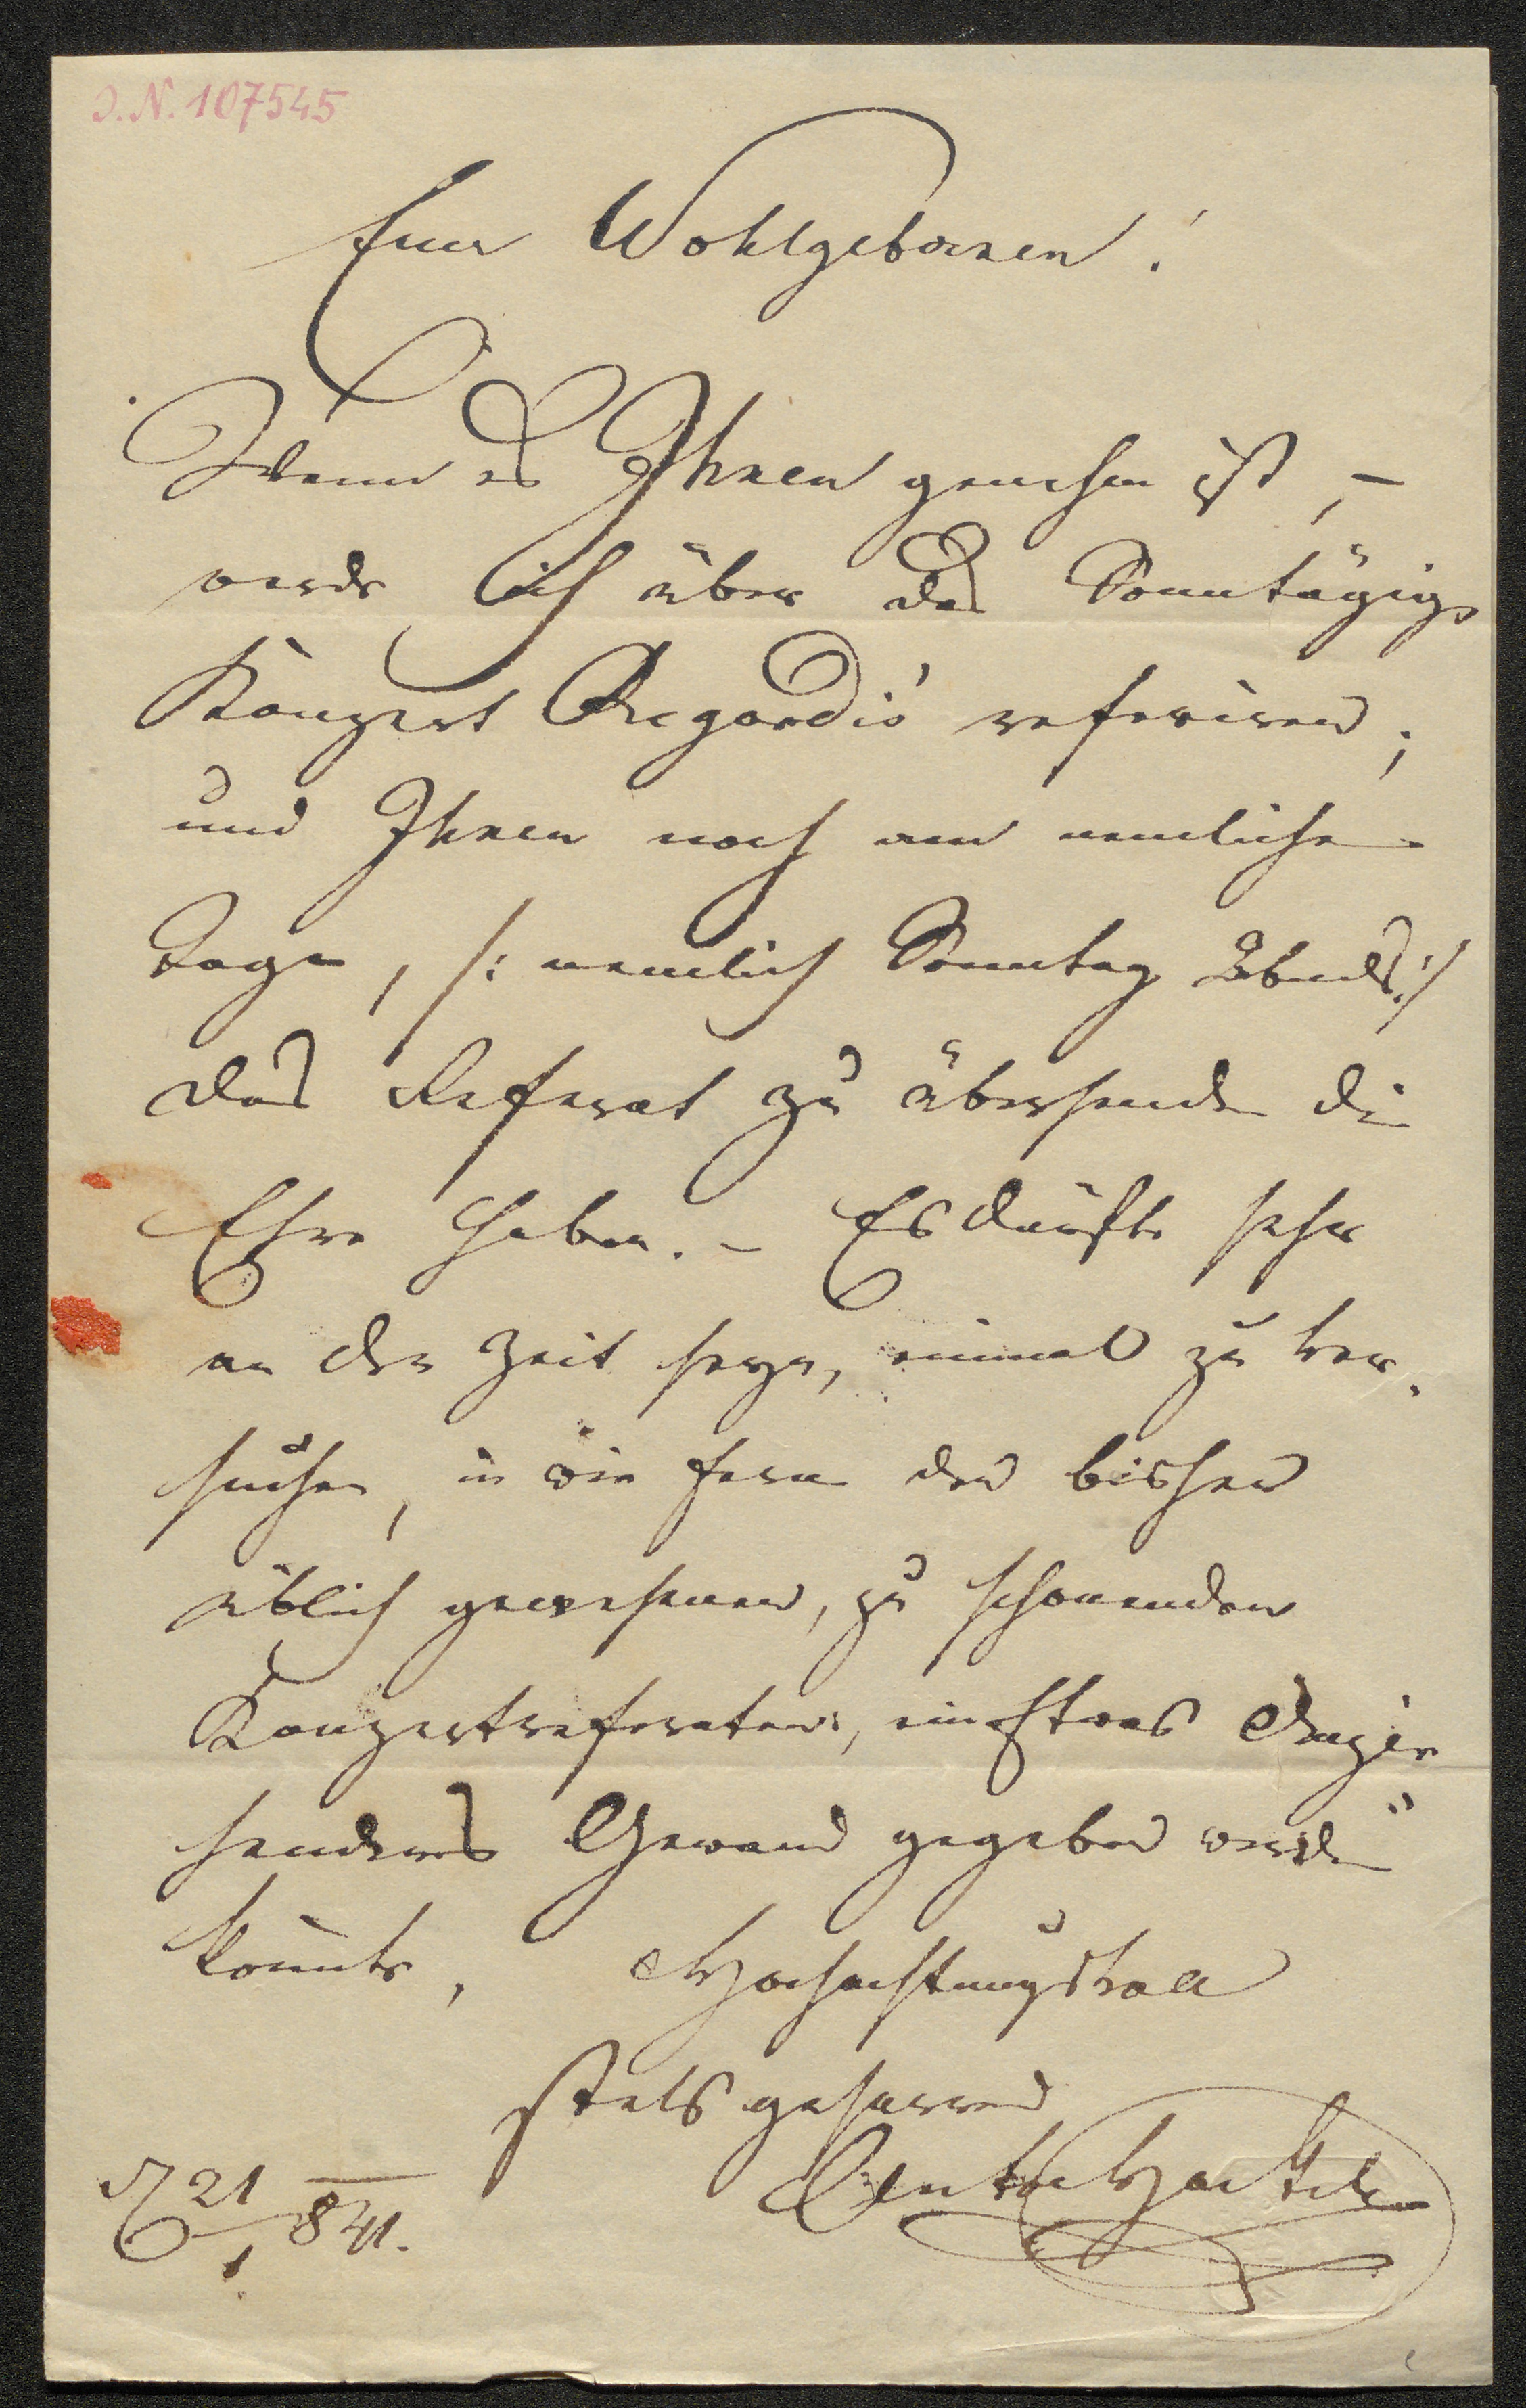 I.N. 107545
Euer Wohlgeboren!
Wenn es Ihnen genehm ist, –
werde ich über das Sonntägige
Konzert Regondis' referiren;
und Ihnen noch am nemlichen
Tage, /: nemlich Sonntag Abends :/
das Referat zu übersenden die
Ehre haben. – Es dürfte sehr
an der Zeit seyn, einmal zu ver-
suchen, in wie fern den bisher
üblich gewesenen, zu schonenden
Konzertreferaten, ein Etwas Anzie
henderes Gewand gegeben werden
könnte, Hochachtungsvoll
stets geharrend
21/1 841.